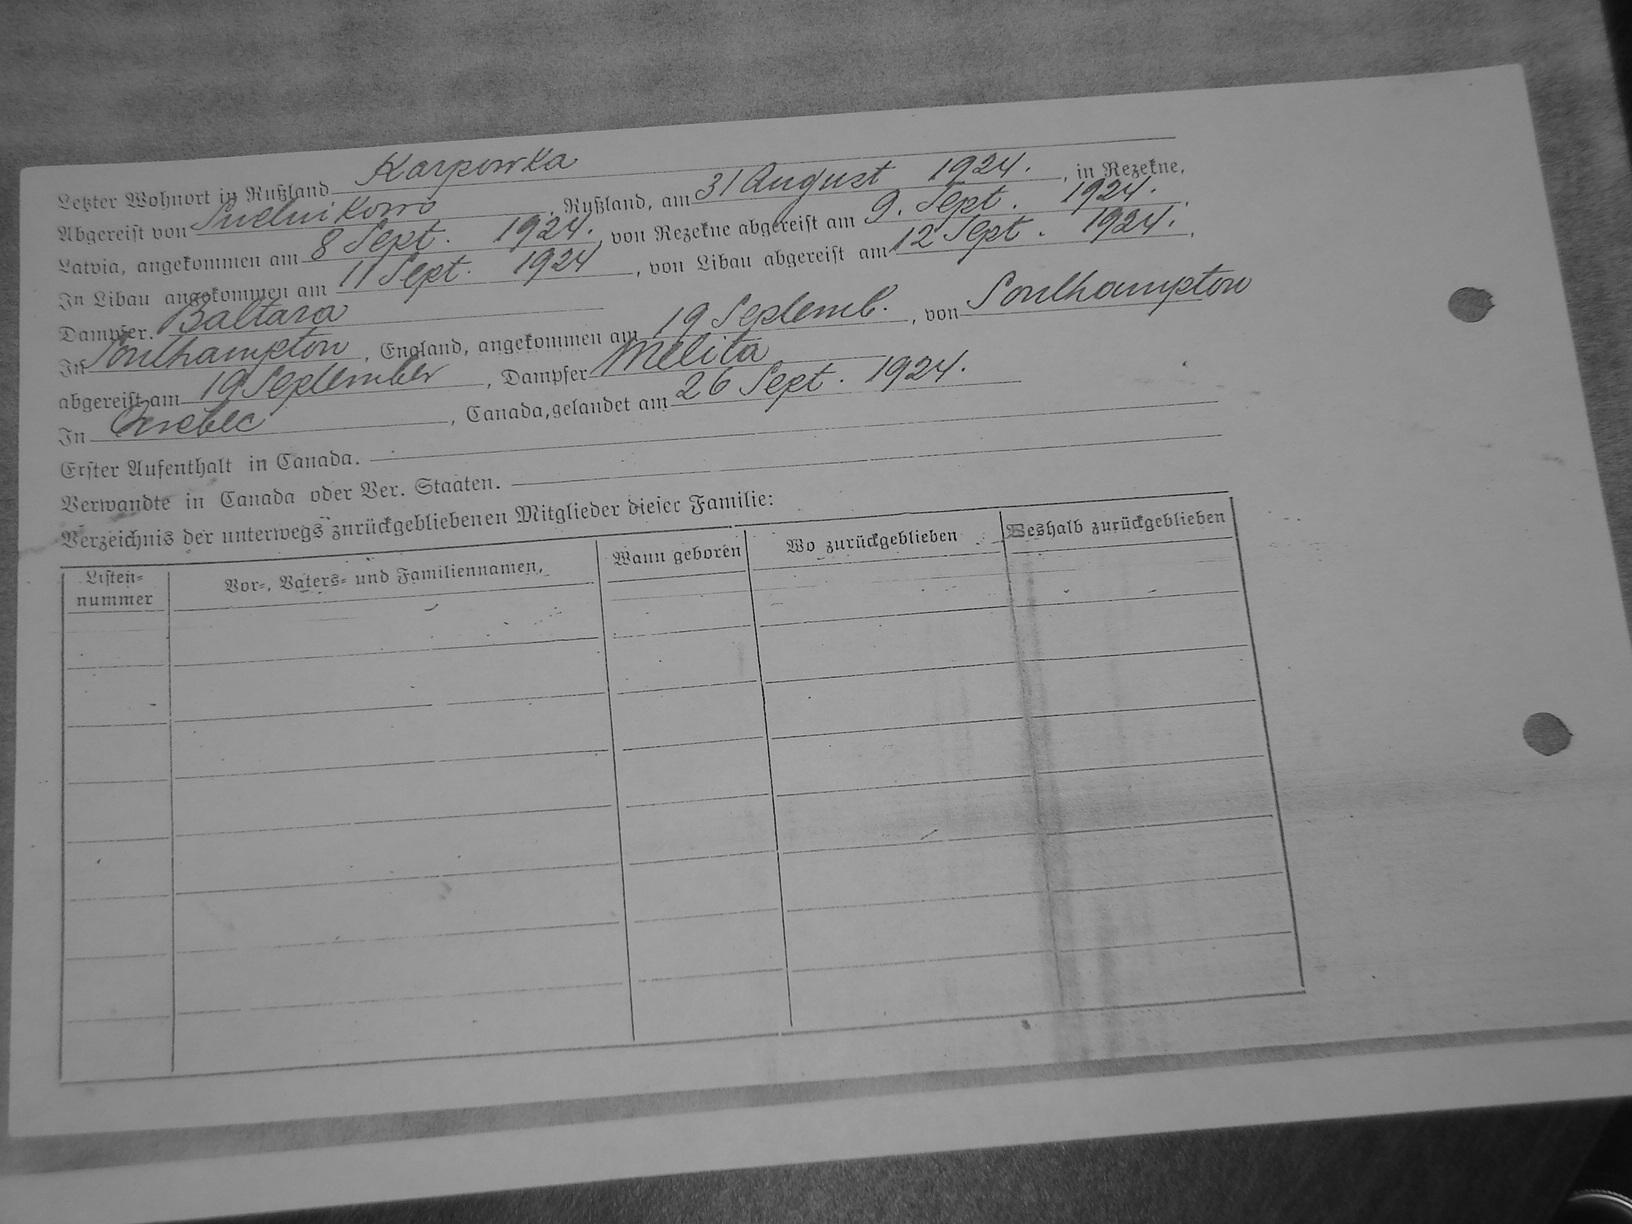 Letzter Wohnort in Rußland Karpowka
Abgereist von Sudnikowo, Rußland, am 31 August 1924. , in Rezekne,
Latvia, angekommen am 8 Sept. 1924. , von Rezekne abgereist am 9. Sept. 1924.
In Libau angekommen am 11 Sept. 1924 , von Libau abgereist am 12 Sept. 1924.
Dampfer. Baltara
In Southampton , England, angekommen am 19 Septemb. , von Southampton
abgereist am 19 September , Dampfer Melita
In Quebec , Canada, gelandet am 26 Sept. 1924.
Erster Aufenthalt in Canada.
Verwandte in Canada oder Ver. Staaten.
Verzeichnis der unterwegs zurückgebliebenen Mitglieder dieser Familie:
Listen-
nummer
Vor-, Vaters- und Familiennamen,
Wann geboren
Wo zurückgeblieben
Weshalb zurückgeblieben